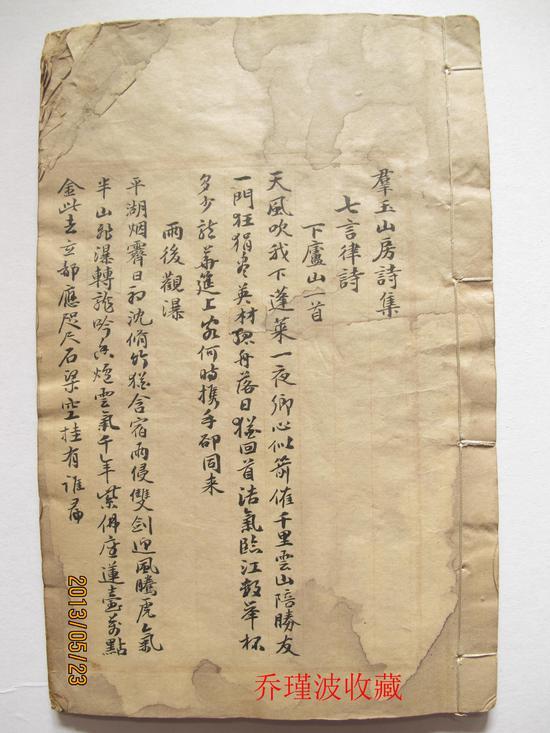 羣玉山房詩集
七言律詩
下廬山一首
天風吹我下蓬萊一夜鄉心似箭催千里雲山陪勝友
一門狂狷盡英材孤舟落日猶回首浩氣臨江數舉杯
多少龍華進上客何時攜手卻同來
雨後觀瀑
平湖烟霽日初沈脩竹猶含宿雨侵雙劍迎風騰虎氣
半山飛瀑轉龍吟香爐雲氣千年紫佛座蓮臺萬點
金此去京都應咫尺石梁空挂有誰尋
乔瑾波收藏
2013/05/23